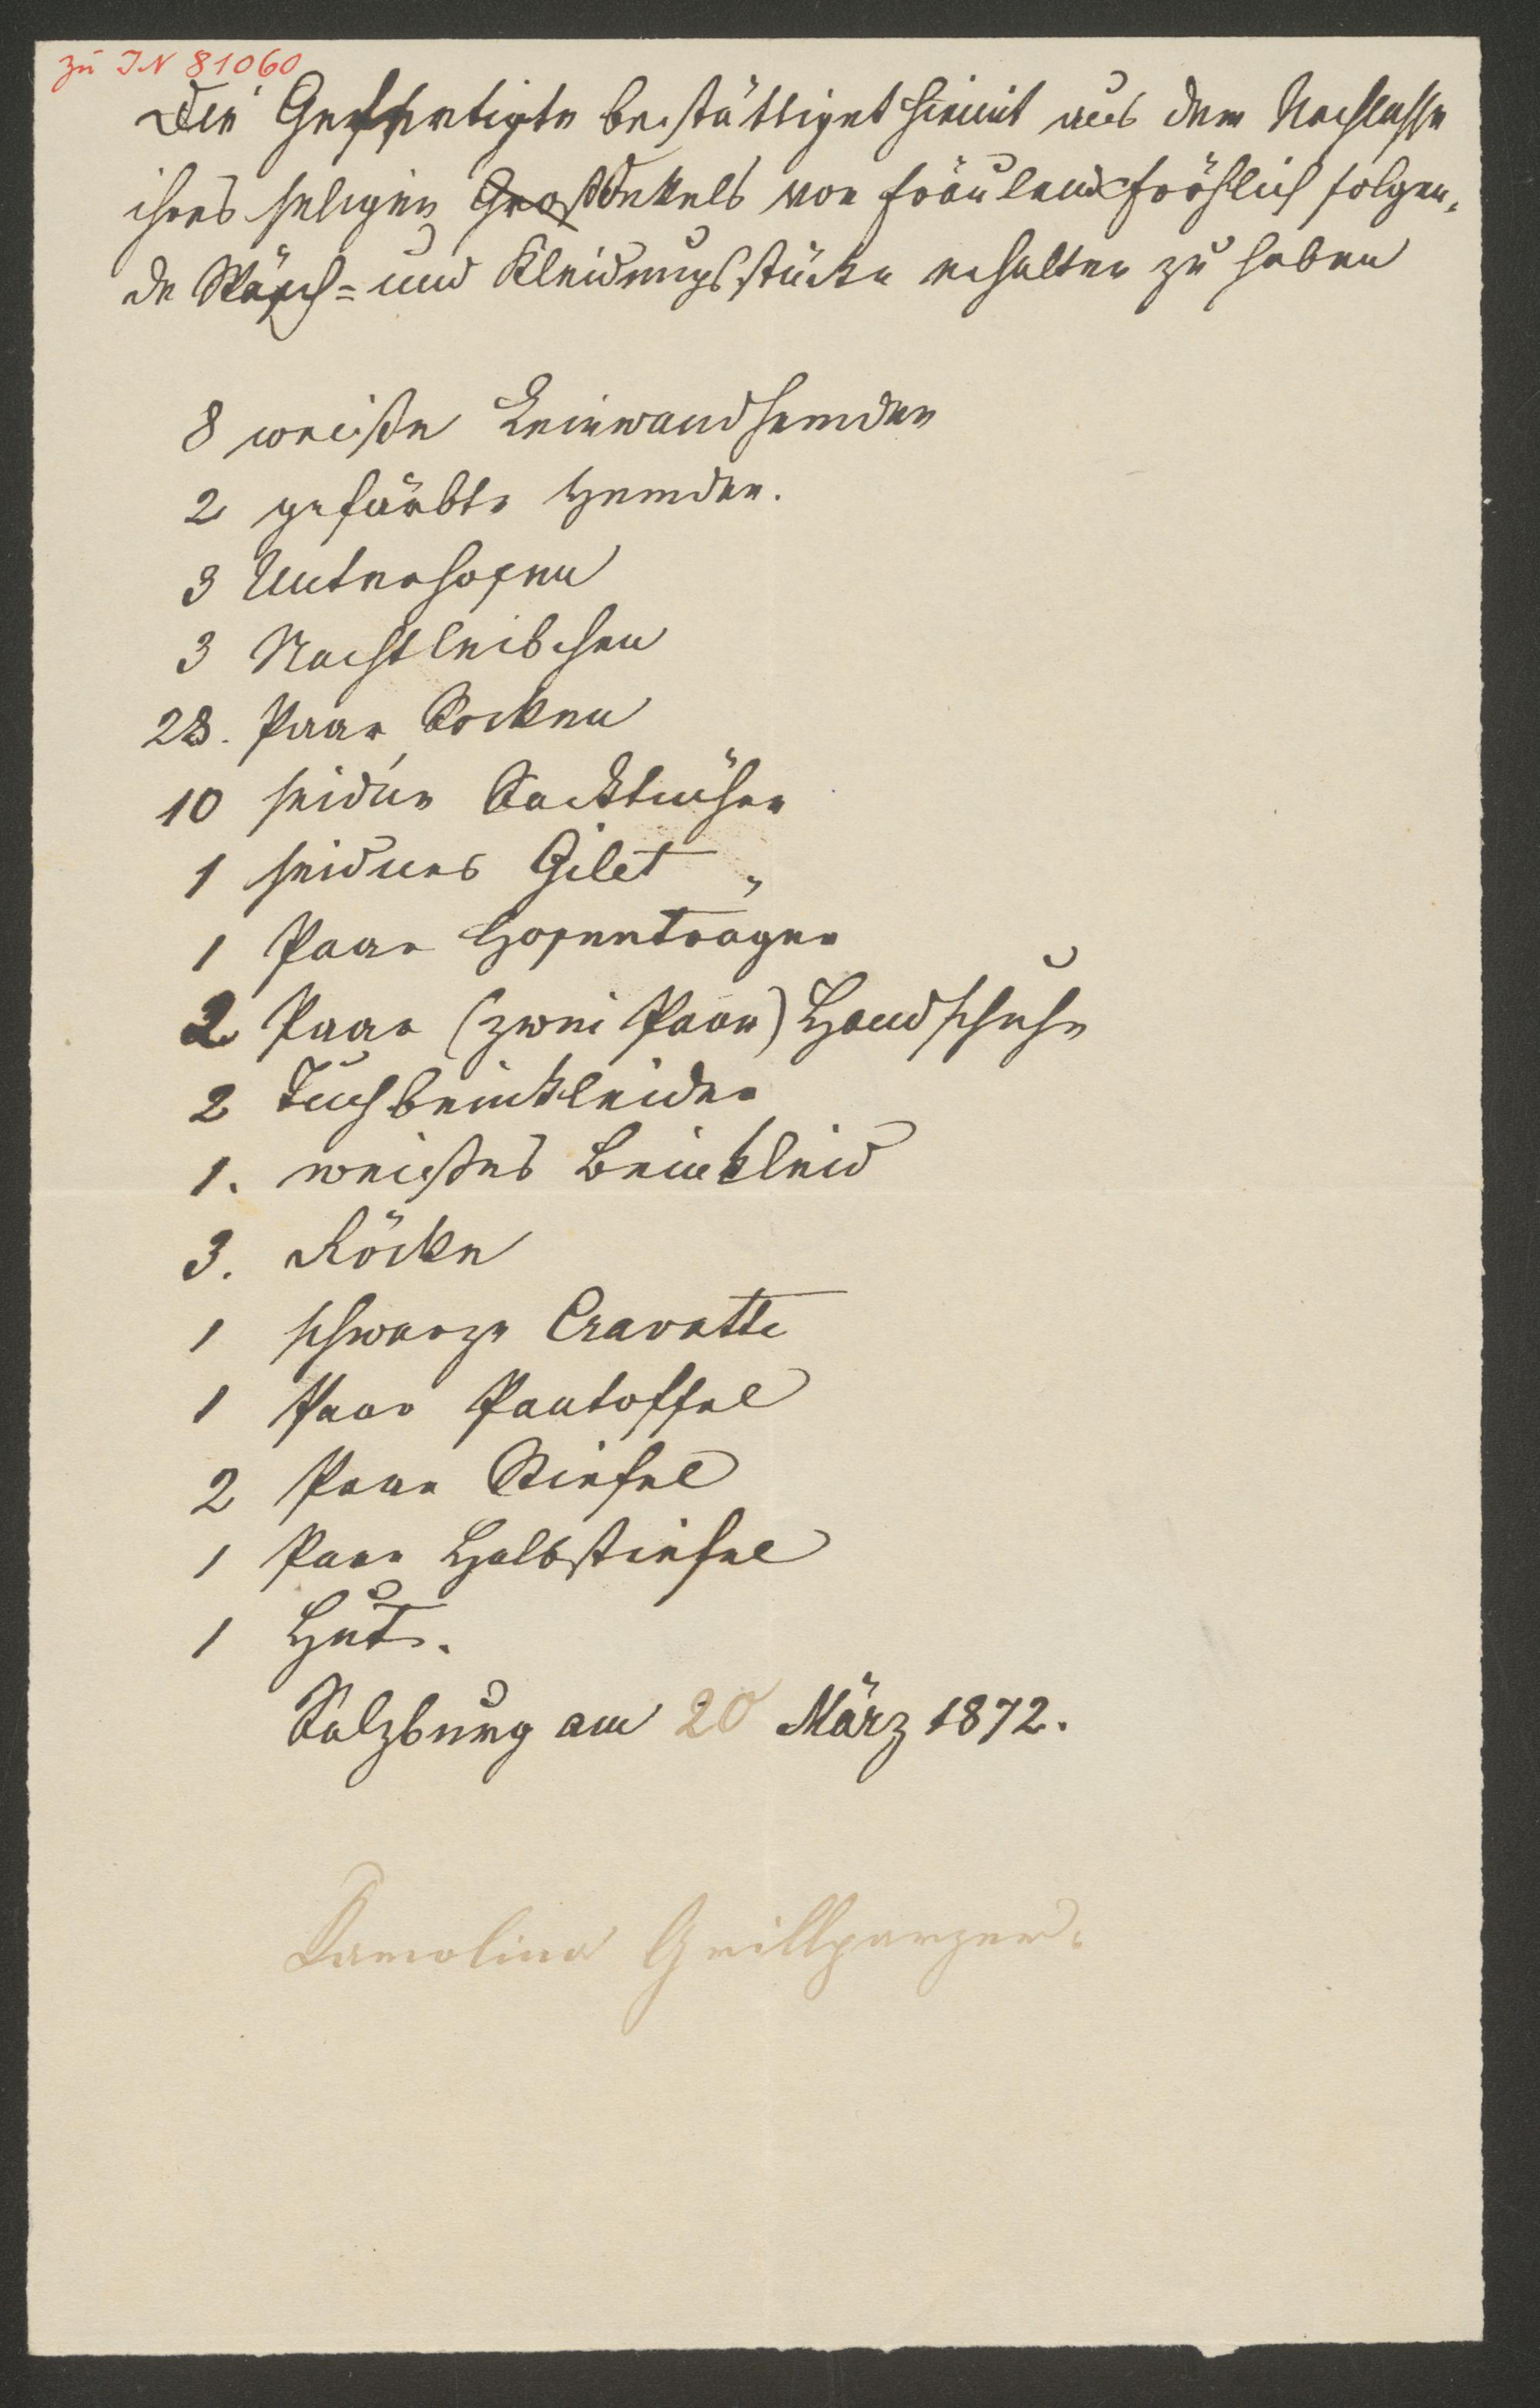 zu IN 81060
Die Gefertigte bestättiget hiemit aus dem Nachlasse
ihres seligen Großonkels von Fräulein Fröhlich folgen-
de Wäsch= und Kleidungsstücke erhalten zu haben
8 weiße Leinwandhemden
2 gefärbte Hemden.
3 Unterhosen
3 Nachtleibchen
28. Paar Socken
10 seidene Sacktücher
1 seidnes Gilet
1 Paar Hosenträger
2 Paar (zwei Paar) Handschuhe
2 Tuchbeinkleider
1. weißes Beinkleid
3. Röcke
1 schwarze Cravatte
1 Paar Pantoffel
2 Paar Stiefel
1 Paar Halbstiefel
1 Hut.
Salzburg am 20 März 1872.
Karolina Grillparzer.